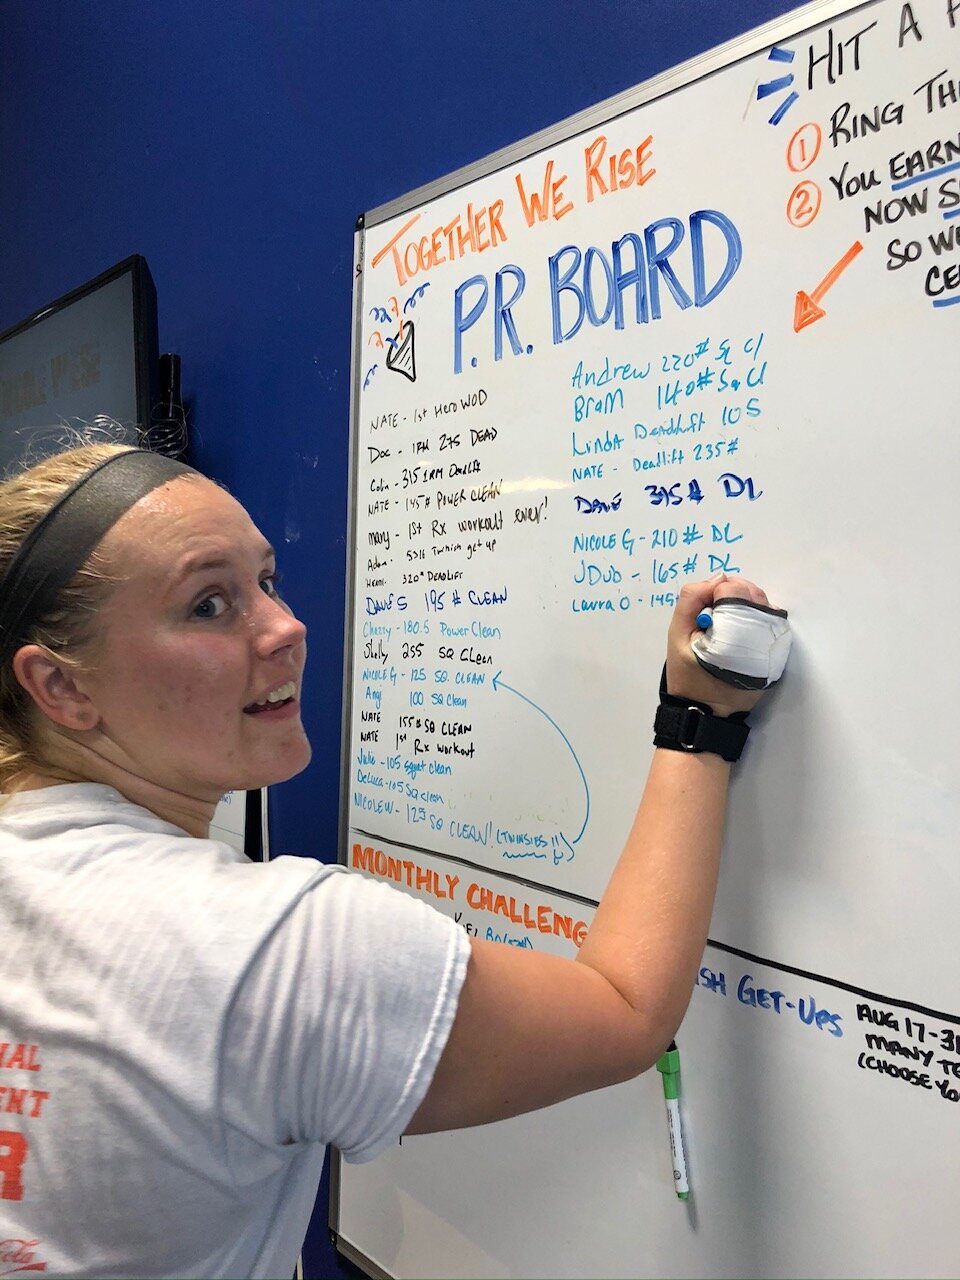 TOGETHER WE RISE
P.R. BOARD
NATE - 1st Hero WOD
Doc - 1RM 275 DEAD
Colin - 315 1RM Deadlift
NATE - 145# POWER CLEAN
Mary - 1st Rx workout ever!
Adam - 53lb Turkish get up
320# DEADLIFT
DAVE S 195# CLEAN
Chazzy - 180.5 Power Clean
Shelly 255 SQ CLean
NICOLE G - 125 SQ. CLEAN
Angi 100 SQ Clean
NATE 155# SQ CLEAN
NATE 1st Rx workout
Julie - 105 squat clean
DeLuca - 105 SQ clean
NICOLE W - 125 SQ CLEAN! (TWINSIES!!)
Andrew 220# Sq Cl
Bram 140# Sq Cl
Linda Deadlift 105
NATE - Deadlift 235#
DAVE 395# DL
NICOLE G - 210# DL
JDub - 165# DL
Laura O - 145
HIT A
① RING TH
② YOU EARN
NOW S
SO WE
CE
MONTHLY CHALLENG
ISH GET-UPS
AUG 17-31
MANY TG
(CHOOSE YO
NAL
ENT
R